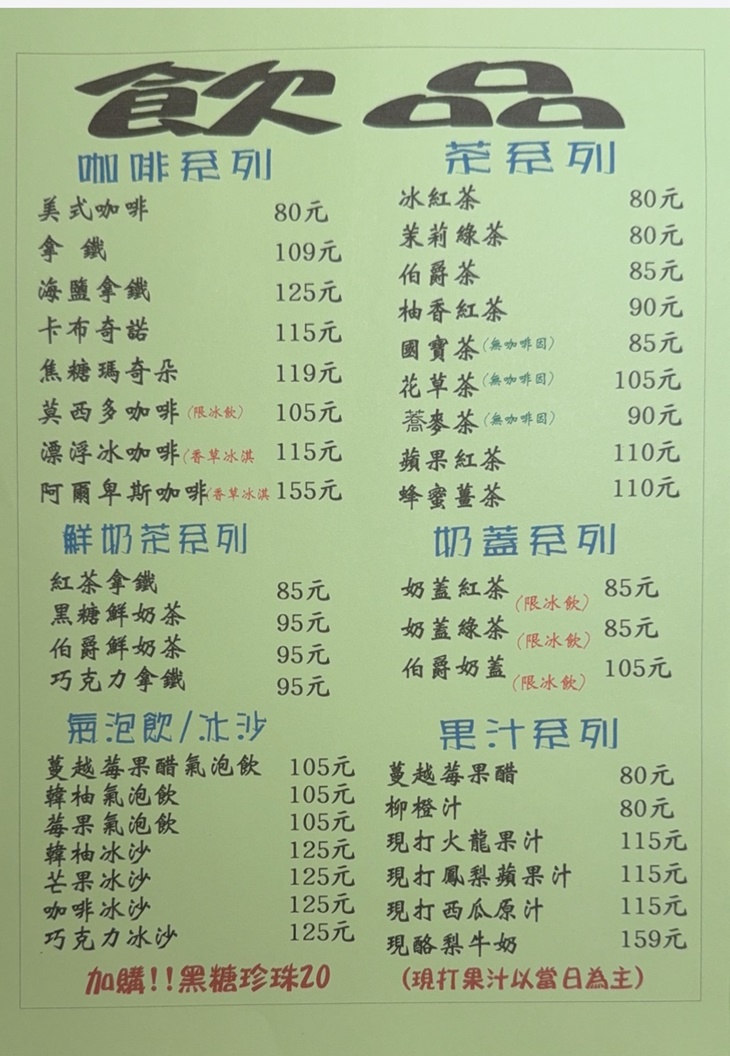 飲品
咖啡系列
美式咖啡 80元
拿鐵 109元
海鹽拿鐵 125元
卡布奇諾 115元
焦糖瑪奇朵 119元
莫西多咖啡(限冰飲) 105元
漂浮冰咖啡(香草冰淇 115元
阿爾卑斯咖啡(香草冰淇 155元
茶系列
冰紅茶 80元
茉莉綠茶 80元
伯爵茶 85元
柚香紅茶 90元
國寶茶(無咖啡因) 85元
花草茶(無咖啡因) 105元
蕎麥茶(無咖啡因) 90元
蘋果紅茶 110元
蜂蜜薑茶 110元
鮮奶茶系列
紅茶拿鐵 85元
黑糖鮮奶茶 95元
伯爵鮮奶茶 95元
巧克力拿鐵 95元
奶蓋系列
奶蓋紅茶(限冰飲) 85元
奶蓋綠茶(限冰飲) 85元
伯爵奶蓋(限冰飲) 105元
氣泡飲/冰沙
蔓越莓果醋氣泡飲 105元
韓柚氣泡飲 105元
莓果氣泡飲 105元
韓柚冰沙 125元
芒果冰沙 125元
咖啡冰沙 125元
巧克力冰沙 125元
加購!!黑糖珍珠20
果汁系列
蔓越莓果醋 80元
柳橙汁 80元
現打火龍果汁 115元
現打鳳梨蘋果汁 115元
現打西瓜原汁 115元
現酪梨牛奶 159元
(現打果汁以當日為主)